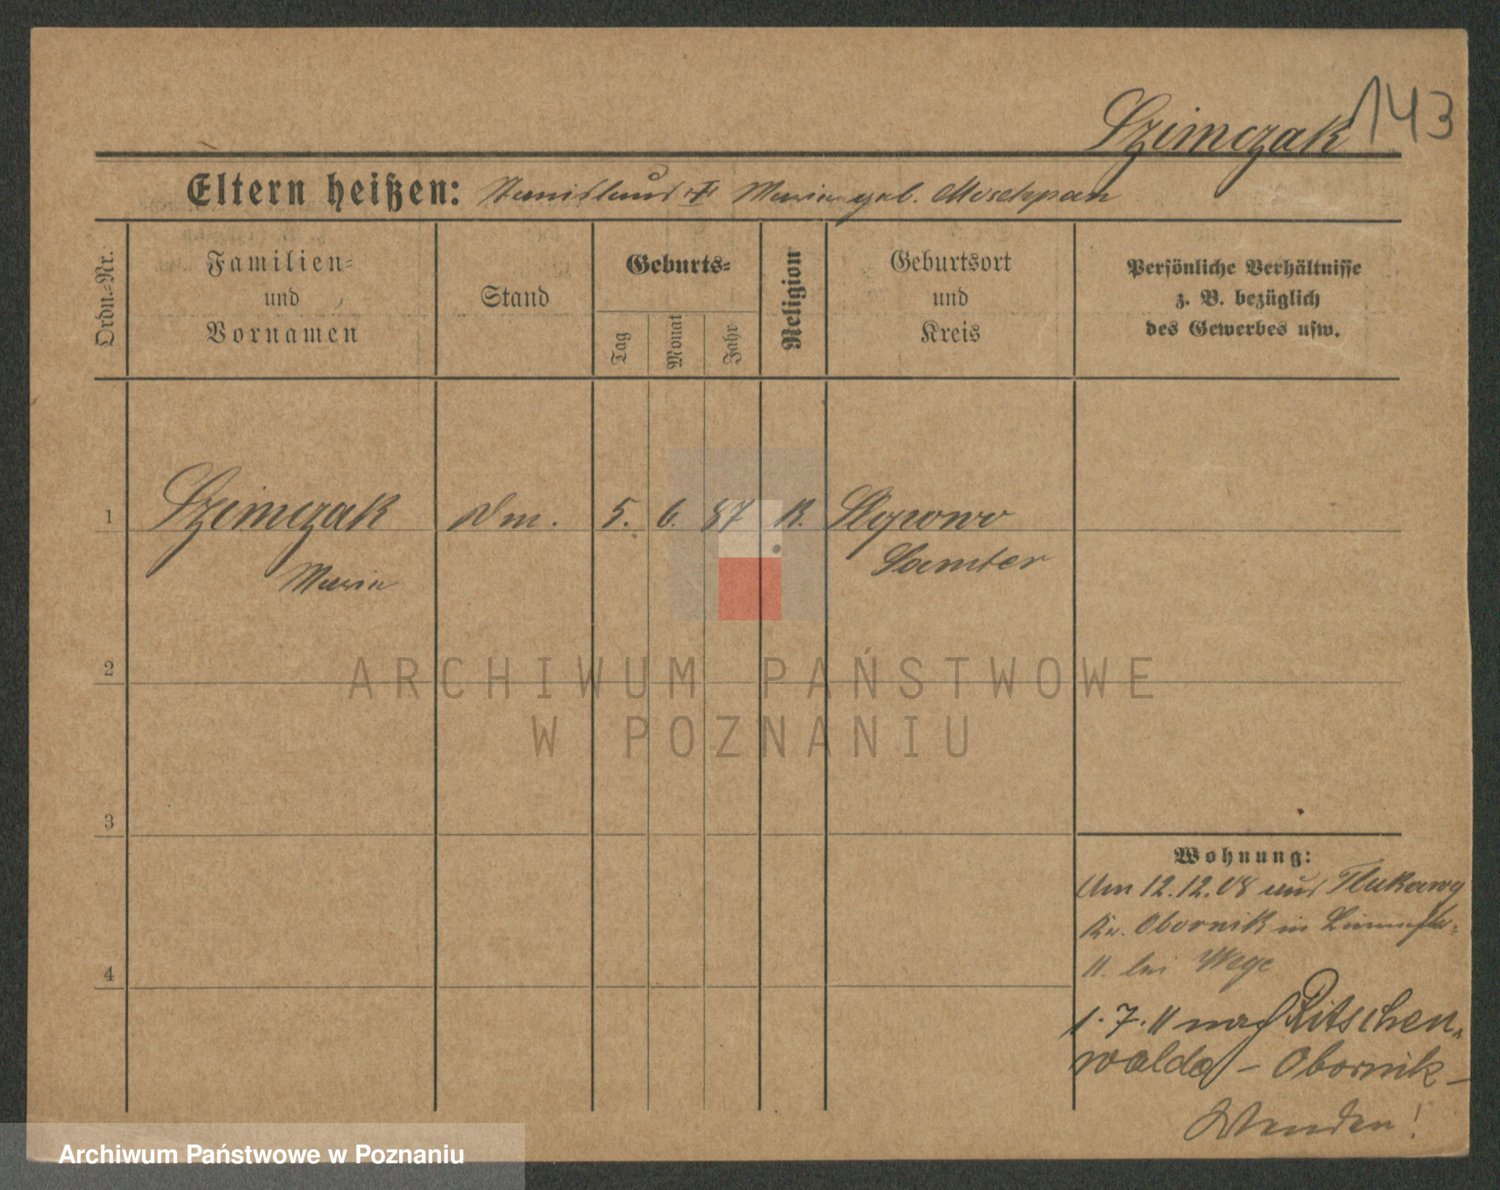 Szimczak 143
Eltern heißen: Stanislaus Maria geb. Moschpan
Ordn.-Nr.
Familien-
und
Vornamen
Stand
Geburts-
Tag
Monat
Jahr
Religion
Geburtsort
und
Kreis
Persönliche Verhältnisse
z. B. bezüglich
des Gewerbes usw.
1 Szimczak Dm. 5. 6. 87 K. Slopowo
Maria Samter
2
ARCHIWUM PAŃSTWOWE
W POZNANIU
3
4
Wohnung:
Am 12.12.08 aus Tlukawy
Kr. Obornik in
11. bei Wege
1.7.11 nach Ritschen-
walde - Obornik -
Wenden!
Archiwum Państwowe w Poznaniu